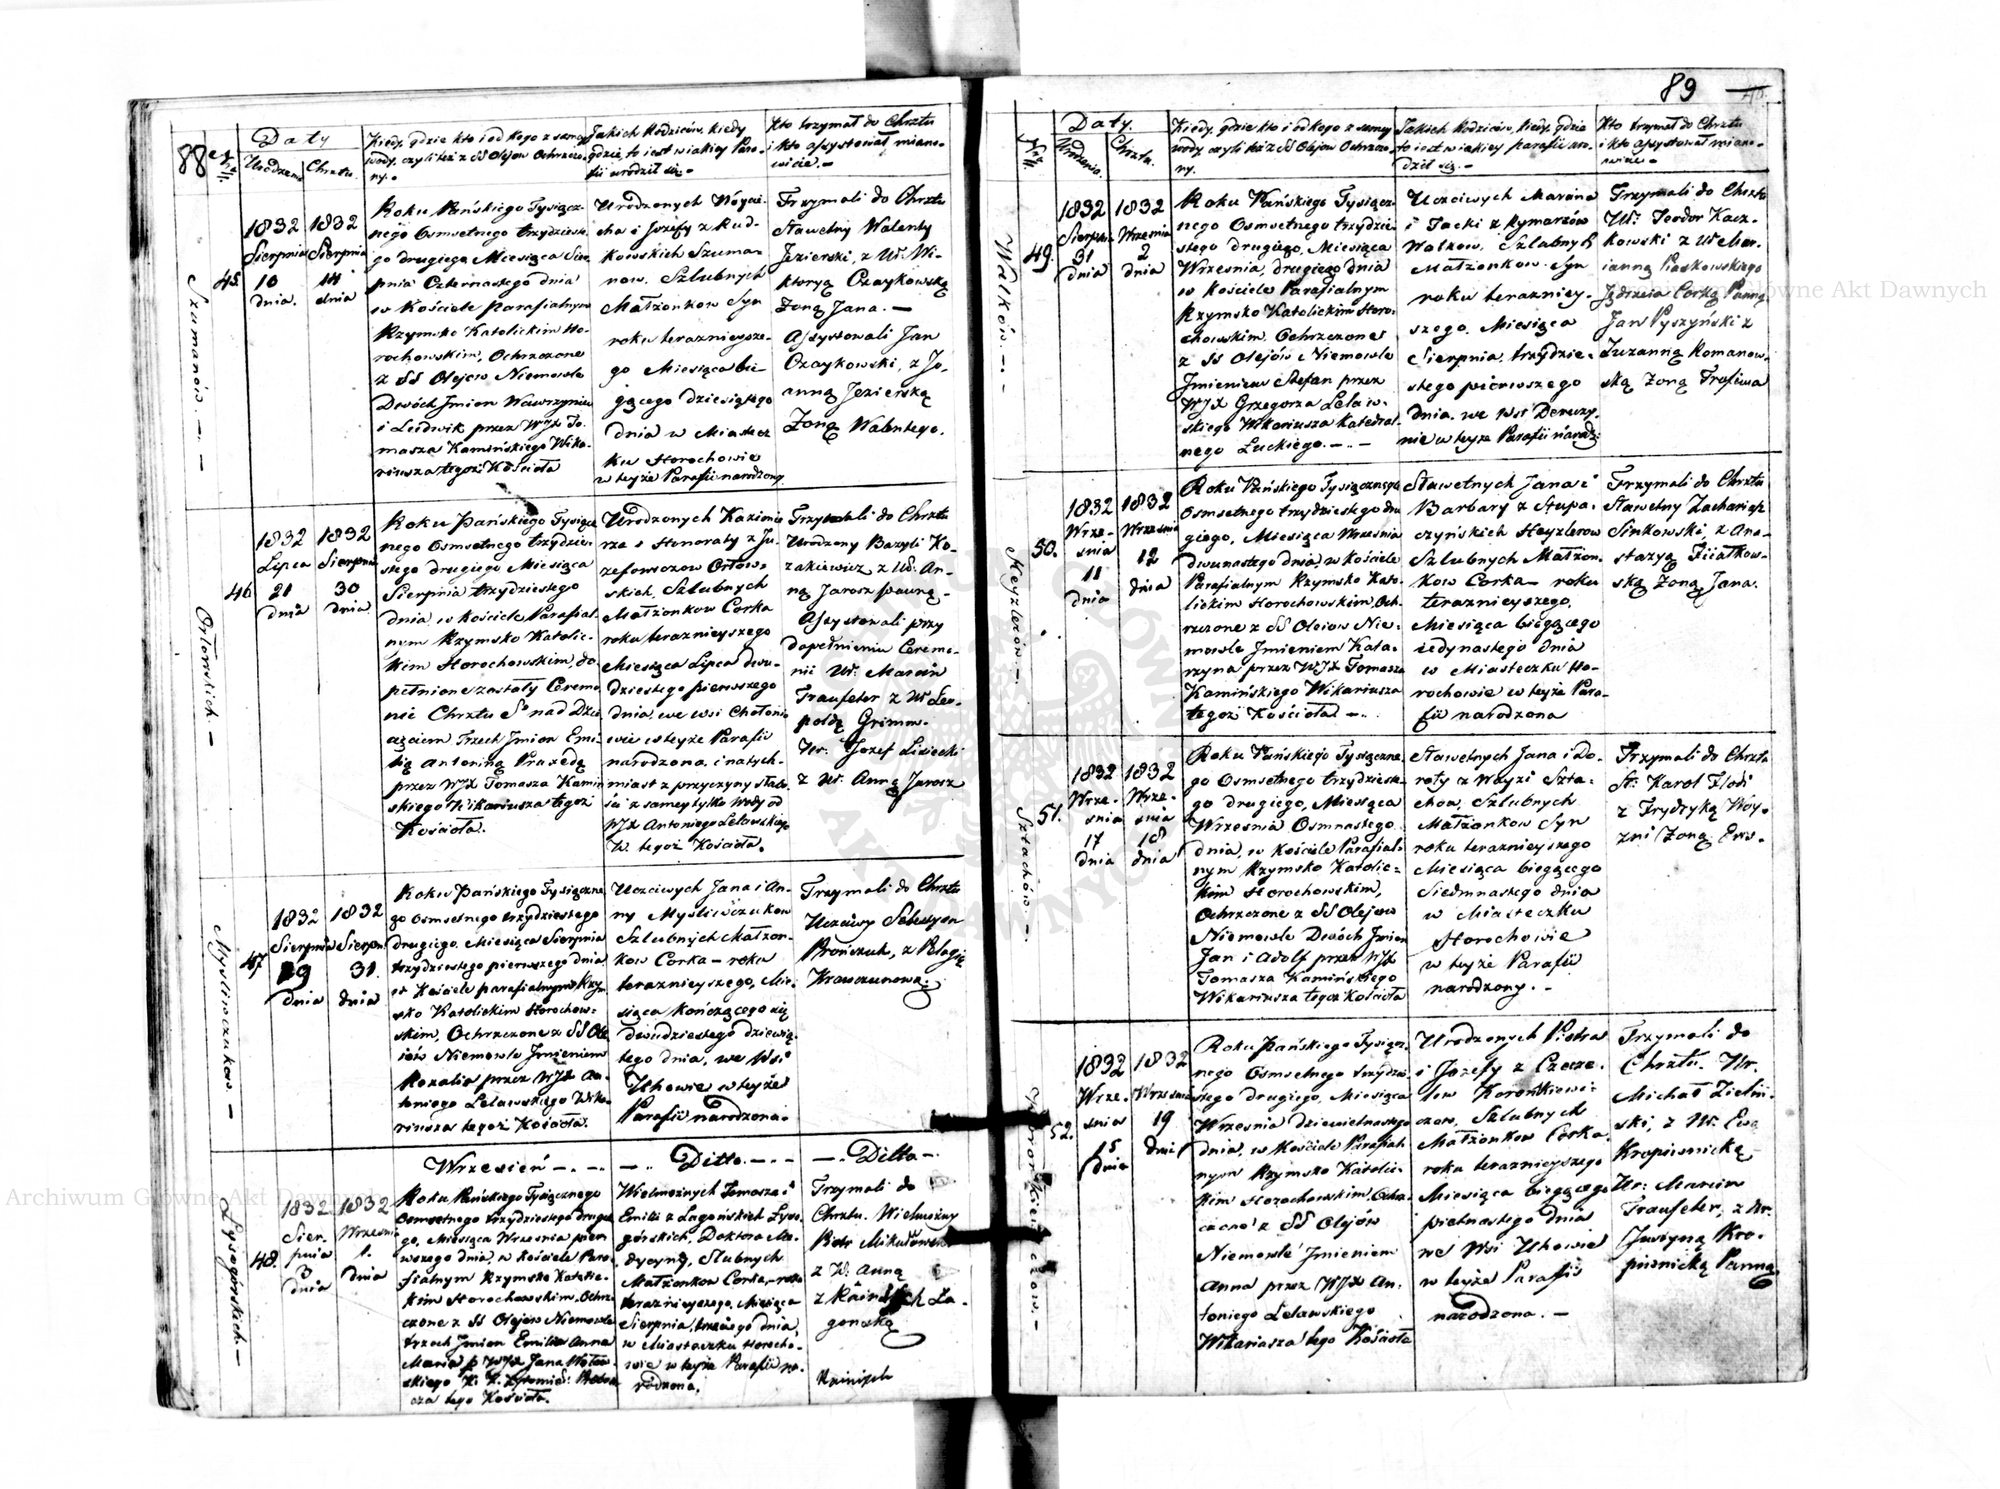 88
Daty
Urodzenia
Chrztu.
Kiedy, gdzie kto i od kogo z samey
wody, czyli też z SS Olejow Ochrzczo-
ny.
Jakich Rodziców, kiedy
gdzie, to iest w iakiey Para-
fii urodził się.
Kto trzymał do Chrztu
i kto assystował miano-
wicie.
Szumanów.
45.
1832
Sierpnia
10
dnia.
1832
Sierpnia
14
dnia
Roku Pańskiego Tysiącz-
nego Osmsetnego trzydzieste-
go drugiego Miesiąca Sier-
pnia Czternastego dnia
w Kościele Parafialnym
Rzymsko Katolickim Ho-
rochowskim, Ochrzczone
z SS Olejow Niemowle
Dwóch Jmion Wawrzyniec
i Ludwik przez WJX To-
masza Kamińskiego Wika-
riusza tegoż Kościoła
Urodzonych Woycie-
cha i Jozefy z Rud-
kowskich Szuma-
now, Szlubnych
Małżonkow Syn
roku teraznieysze-
go Miesiąca bie-
gącego dziesiątego
dnia w Miastecz
ku Horochowie
w teyże Parafii narodzony
Trzymali do Chrztu
Sławetny Walenty
Jezierski, z Ur. Wi-
ktoryą Czaykowską
Żoną Jana. —
Assystowali Jan
Czaykowski, z Jo-
anną Jezierską
Żoną Walentego.
Orłowskich.
46.
1832
Lipca
21
dnia
1832
Sierpnia
30
dnia
Roku Pańskiego Tysiącz
nego Osmsetnego trzydzie-
stego drugiego Miesiąca
Sierpnia trzydziestego
dnia, w Kościele Parafial-
nym Rzymsko Katolic-
kim Horochowskim, do-
pełnione zostały Ceremo
nie Chrztu So nad Dzie
cięciem Trzech Jmion Emi-
lią Antoniną Praxedą
przez WJX Tomasza Kamiń
skiego Wikariusza tegoż
Kościoła.
Urodzonych Kazimie
rza i Honoraty z Ju-
zefowiczow Orłow-
skich, Szlubnych
Małżonkow Corka
roku teraznieyszego
Miesiąca Lipca dwu-
dziestego pierwszego
dnia, we wsi Chołonie
wie w teyże Parafii
narodzona, i natych-
miast z przyczyny słabo-
ści z samey tylko Wody od
WJX Antoniego Lelawskiego
W. tegoż Kościoła.
Trzymali do Chrztu
Urodzony Bazyli Ko-
zakiewicz z Ur. An-
ną Jarosz panną
Assystowali przy
dopełnieniu Ceremo-
nii Ur. Marcin
Traufeter z Ur Leo-
poldą Grimow-
Ur. Jozef Lisiecki
z Ur. Anną Jarosz
Mysliwczukow.
47
1832
Sierpnia
29
dnia
1832
Sierpn
31.
dnia
Roku Pańskiego Tysiączne
go Osmsetnego trzydziestego
drugiego, Miesiąca Sierpnia
trzydziestego pierwszego dnia
w Kościele parafialnym Rzym
sko Katolickim Horochow-
skim, Ochrzczone z SS Ole
iów Niemowle Jmieniem
Rozalia przez WJX An
toniego Lelawskiego Wika-
riusza tegoż Kościoła.
Uczciwych Jana i An-
ny Mysliwczukow
Szlubnych Małżon-
kow Corka — roku
teraznieyszego, Mie-
siąca Kończącego się
dwudziestego dziewią-
tego dnia, we Wsi
Uhowie w teyże
Parafii narodzona.
Trzymali do Chrztu
Uczciwy Sebestyan
Prończuk, z Pelagią
Krawczunową.
Łysogórskich.
48.
1832
Sier-
pnia
3
dnia
1832
Wrzesnia
1.
dnia
Wrzesień
Roku Pańskiego Tysiącznego
Osmsetnego trzydziestego drugie
go, Miesiąca Wrzesnia pier
wszego dnia, w Kościele Para-
fialnym Rzymsko Katolic-
kim Horochowskim, Ochrz
czone z SS Olejow Niemowle
trzech Jmion Emilia Anna
Maria p WJX Jana
skiego K. K.
cza tego Kościoła.
Ditto.
Wielmożnych Tomasza i
Emilii z Lagońskich Łyso-
górskich, Doktora Me-
dycyny, Slubnych
Małżonkow Corka, roku
teraznieyszego, Miesiąca
Sierpnia, trzeciego dnia,
w Miasteczku Horocho-
wie w teyże Parafii na-
rodzona.
Ditto
Trzymali do
Chrztu. Wielmożny
Piotr Mikułowski
z W. Anną
z La-
gońską
89
Daty.
Urodzenia.
Chrztu.
Kiedy, gdzie kto i od kogo z samey
wody czyli też z SS Olejow Ochrzczo-
ny.
Jakich Rodziców, kiedy, gdzie
to iest w iakiey parafii uro-
dził się.
Kto trzymał do Chrztu
i kto assystował miano-
wicie.
Walków.
49.
1832
Sierpnia
31
dnia
1832
Wrzesnia
2
dnia
Roku Pańskiego Tysiącz-
nego Osmsetnego trzydzie-
stego drugiego, Miesiąca
Wrzesnia, drugiego dnia
w Kościele Parafialnym
Rzymsko Katolickim Horo-
chowskim, Ochrzczone
z SS Olejów Niemowle
Jmieniem Stefan przez
WJX Grzegorza Lelaw-
skiego Wikariusza Katedral-
nego Łuckiego.
Uczciwych Marcina
i Jacki z Rymarzow
Walkow, Szlubnych
Małżonkow Syn
roku terazniey-
szego, Miesiąca
Sierpnia, trzydzie-
stego pierwszego
dnia, we wsi
nie w teyże Parafii narodz:
Trzymali do Chrztu
Ur: Teodor Kacz-
kowski z Ur Mar-
ianną Piaskowskiego
Jędrzeia Corką Panną
Jan Pyszyński z
Zuzanną Romanow-
ską Żoną Trofima
Heyzlerów.
50.
1832
Wrze-
snia
11
dnia
1832
Wrzesnia
12
dnia
Roku Pańskiego Tysiącznego
Osmsetnego trzydziestego dru
giego, Miesiąca Wrzesnia
dwunastego dnia, w Kościele
Parafialnym Rzymsko Kato-
lickim Horochowskim, Och-
rzczone z SS Oleiow Nie-
mowle Jmieniem Kata-
rzyna przez WJX Tomasza
Kamińskiego Wikariusza
tegoż Kościoła.
Sławetnych Jana i
Barbary z Stupa-
czyńskich Heyzlerow
Szlubnych Małżon-
kow Corka — roku
teraznieyszego,
Miesiąca biegącego
iedynastego dnia
w Miasteczku Ho-
rochowie w teyże Para-
fii narodzona
Trzymali do Chrztu
Sławetny Zachariasz
Sinkowski, z Ana-
stazyą Fiiałkow-
ską Żoną Jana.
Sztachów.
51.
1832
Wrze-
snia
17
dnia
1832
Wrze-
snia
18
dnia
Roku Pańskiego Tysiączne
go Osmsetnego trzydzieste-
go drugiego, Miesiąca
Wrzesnia Osmnastego
dnia, w Kościele Parafial-
nym Rzymsko Katolic-
kim Horochowskim,
Ochrzczone z SS Olejow
Niemowle Dwóch Jmion
Jan i Adolf przez WJX
Tomasza Kamińskiego
Wikariusza tegoż Kościoła
Sławetnych Jana i Do-
roty z Woyzi Szta-
chow, Szlubnych
Małżonkow Syn
roku teraznieyszego
Miesiąca biegącego
Siedmnastego dnia
w Miasteczku
Horochowie
w teyże Parafii
narodzony.
Trzymali do Chrztu
Sł: Karol Flodi
z Frydryką Woy-
zni Żoną
52.
1832
Wrze-
snia
15
dnia
1832
Wrzesnia
19
dnia
Roku Pańskiego Tysiącz-
nego Osmsetnego trzydzie-
stego drugiego, Miesiąca
Wrzesnia dziewietnastego
dnia, w Kościele Parafial-
nym Rzymsko Katolic-
kim Horochowskim, Ochrz-
czono z SS Olejów
Niemowle Jmieniem
Anna przez WJX An-
toniego Lelawskiego
Wikariusza tego Kościoła
Urodzonych Piotra
i Jozefy z Czecze-
low Koronkiewi-
czow, Szlubnych
Małżonkow Corka
roku teraznieyszego
Miesiąca biegącego
pietnastego dnia
we Wsi Uhowie
w teyże Parafii
narodzona. —
Trzymali do
Chrztu. Ur.
Michał Zieliń-
ski, z Ur. Ewą
Kropiwnicką
Ur: Marcin
Traufeter, z Ur.
Justyną Kro-
piwnicką Panną
Archiwum Główne Akt Dawnych
Archiwum Główne Akt Dawnych